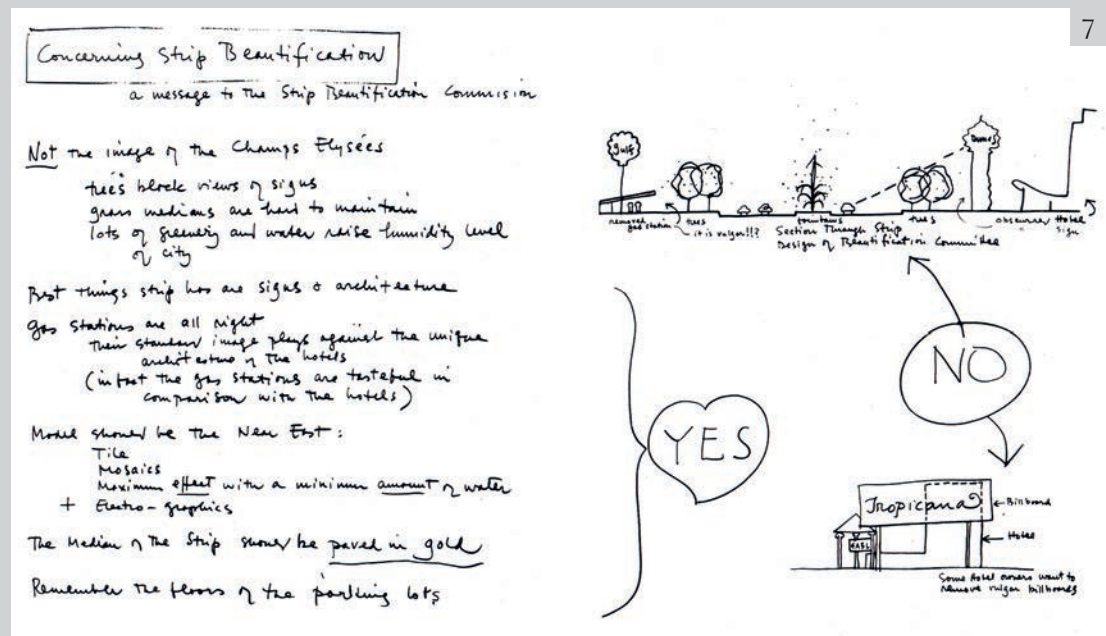 7
Concerning Strip Beautification
a message to the Strip Beautification Commision
Not the image of the Champs Elysées
trees block views of signs
grass medians are hard to maintain
lots of greenery and water raise humidity level
of city
Best things strip has are signs & architecture
gas stations are all right
their standard image plays against the unique
architecture of the hotels
(in fact the gas stations are tasteful in
comparison with the hotels)
Model should be the Near East:
Tile
Mosaics
Maximum effect with a minimum amount of water
+ Electro-graphics
The Median of the Strip should be paved in gold
Remember the floors of the parking lots
Gulf
Dunes
removed
gas station
trees
it is vulgar!!?
fountains
trees
obscured Hotel
sign
Section Through Strip
Design of Beautification Committee
NO
YES
Tropicana
Billboard
Hotel
Some Hotel owners want to
remove vulgar billboards